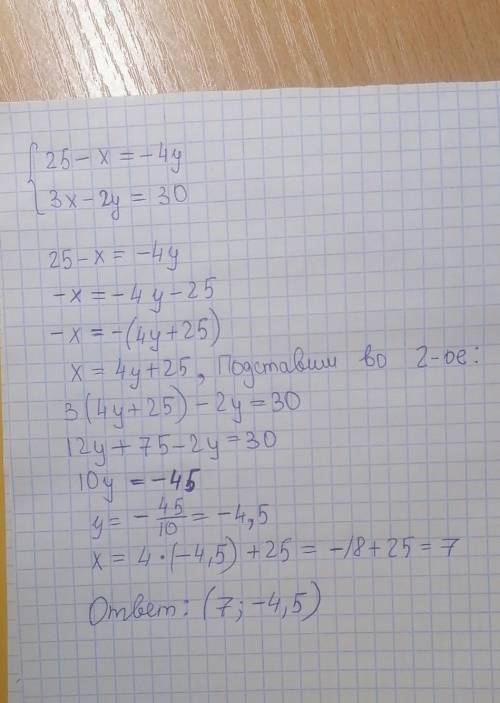 25 - x = -4y
3x - 2y = 30
25 - x = -4y
-x = -4y - 25
-x = -(4y + 25)
x = 4y + 25, Подставим во 2-ое:
3(4y + 25) - 2y = 30
12y + 75 - 2y = 30
10y = -45
y = -45/10 = -4,5
x = 4·(-4,5) + 25 = -18 + 25 = 7
Ответ: (7; -4,5)